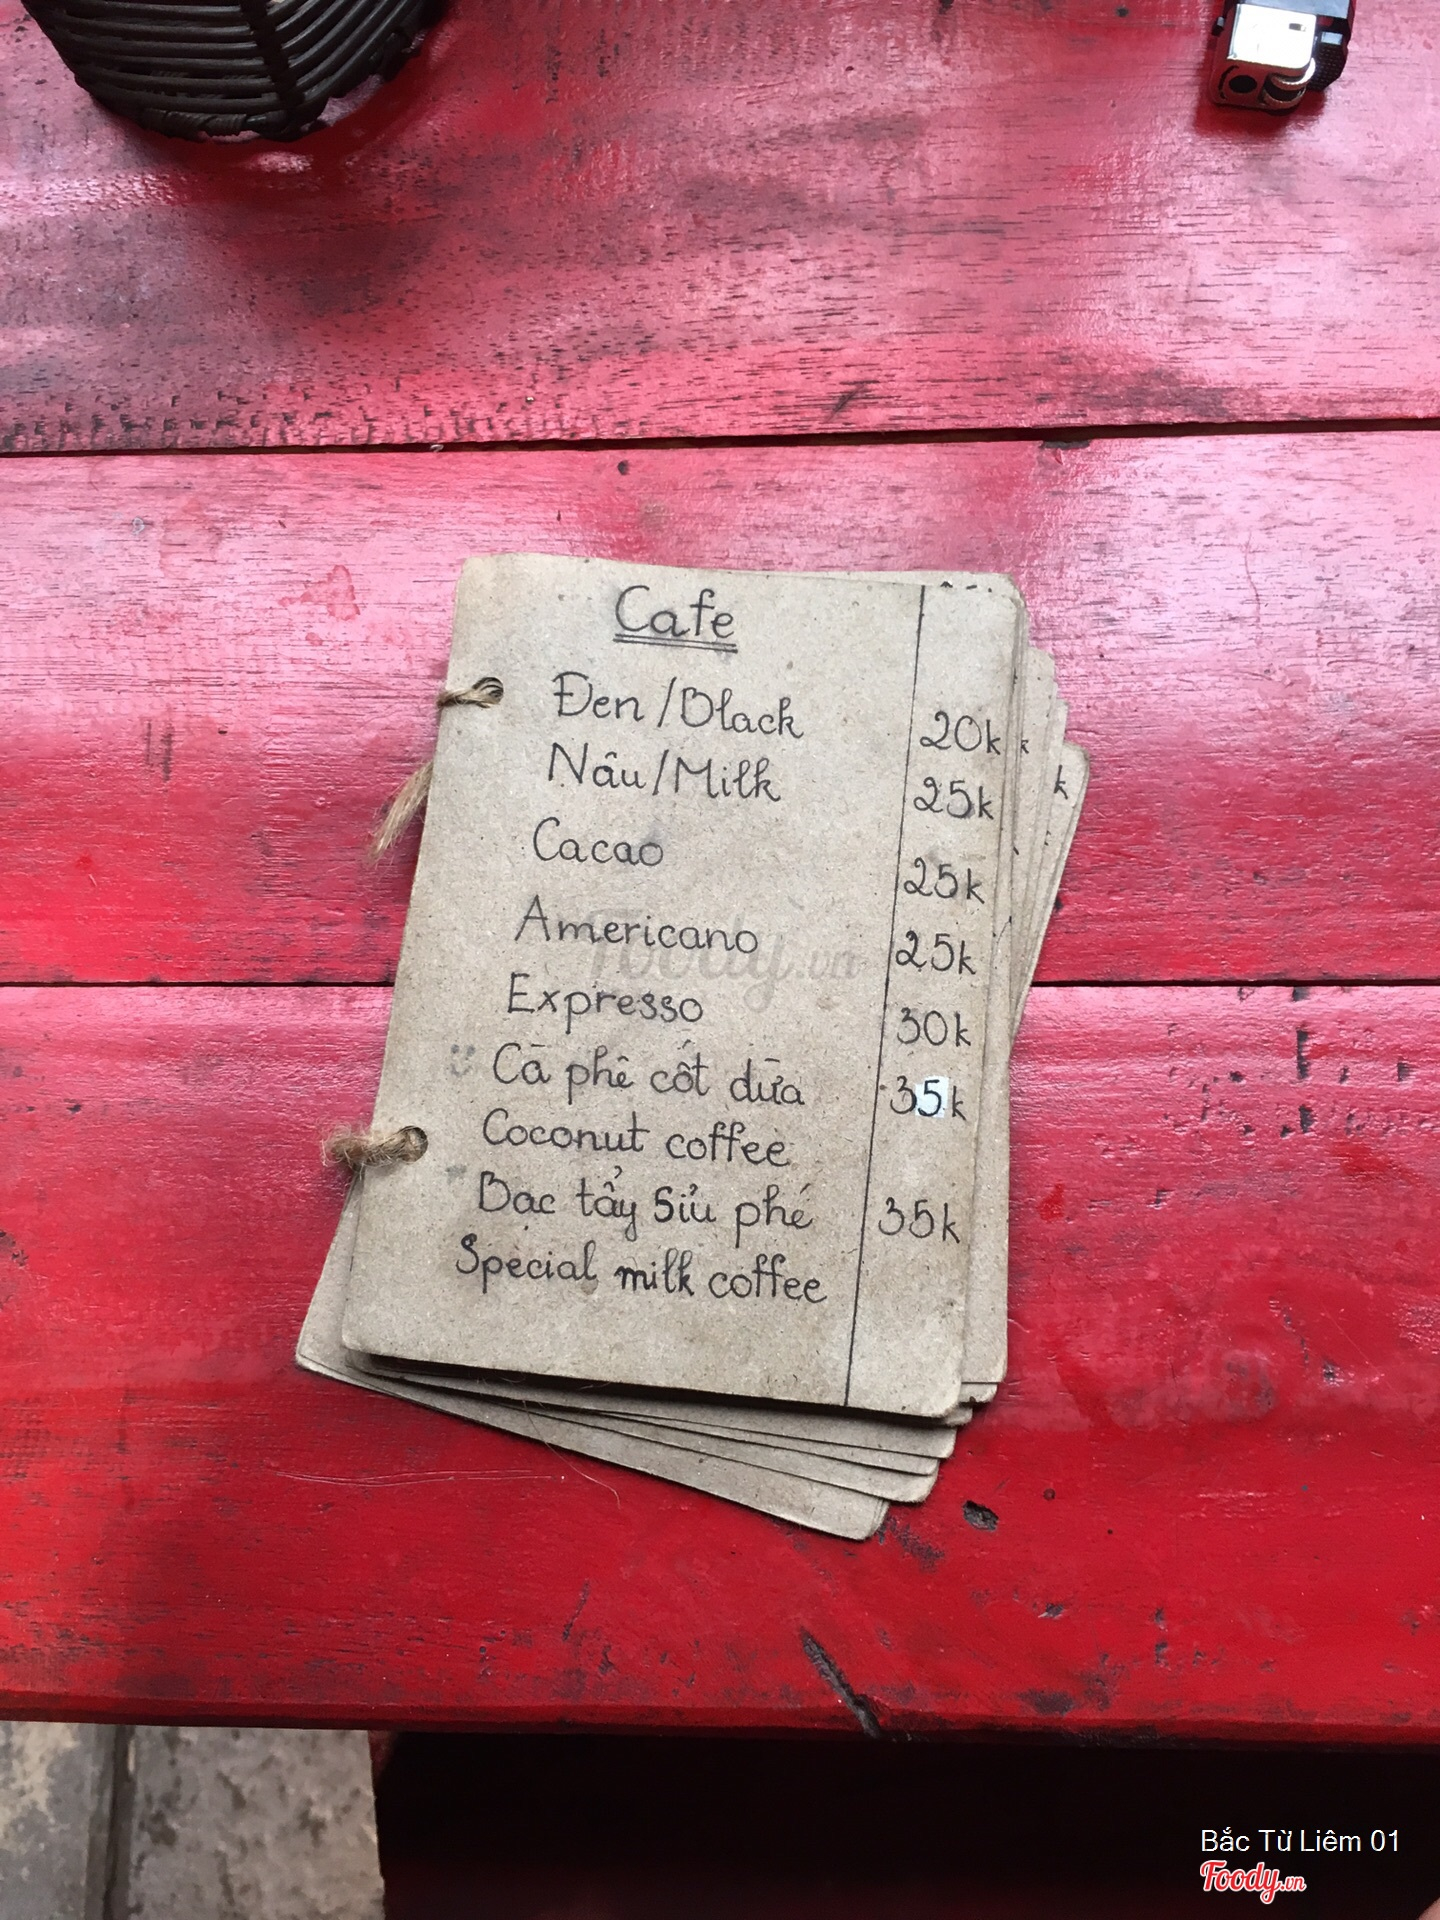 Cafe
Đen/Black 20k
Nâu/Milk 25k
Cacao 25k
Americano 25k
Expresso 30k
Cà phê cốt dừa 35k
Coconut coffee
Bạc tẩy Siủ phé 35k
Special milk coffee
k
k
Foody.vn
Bắc Từ Liêm 01
Foody.vn